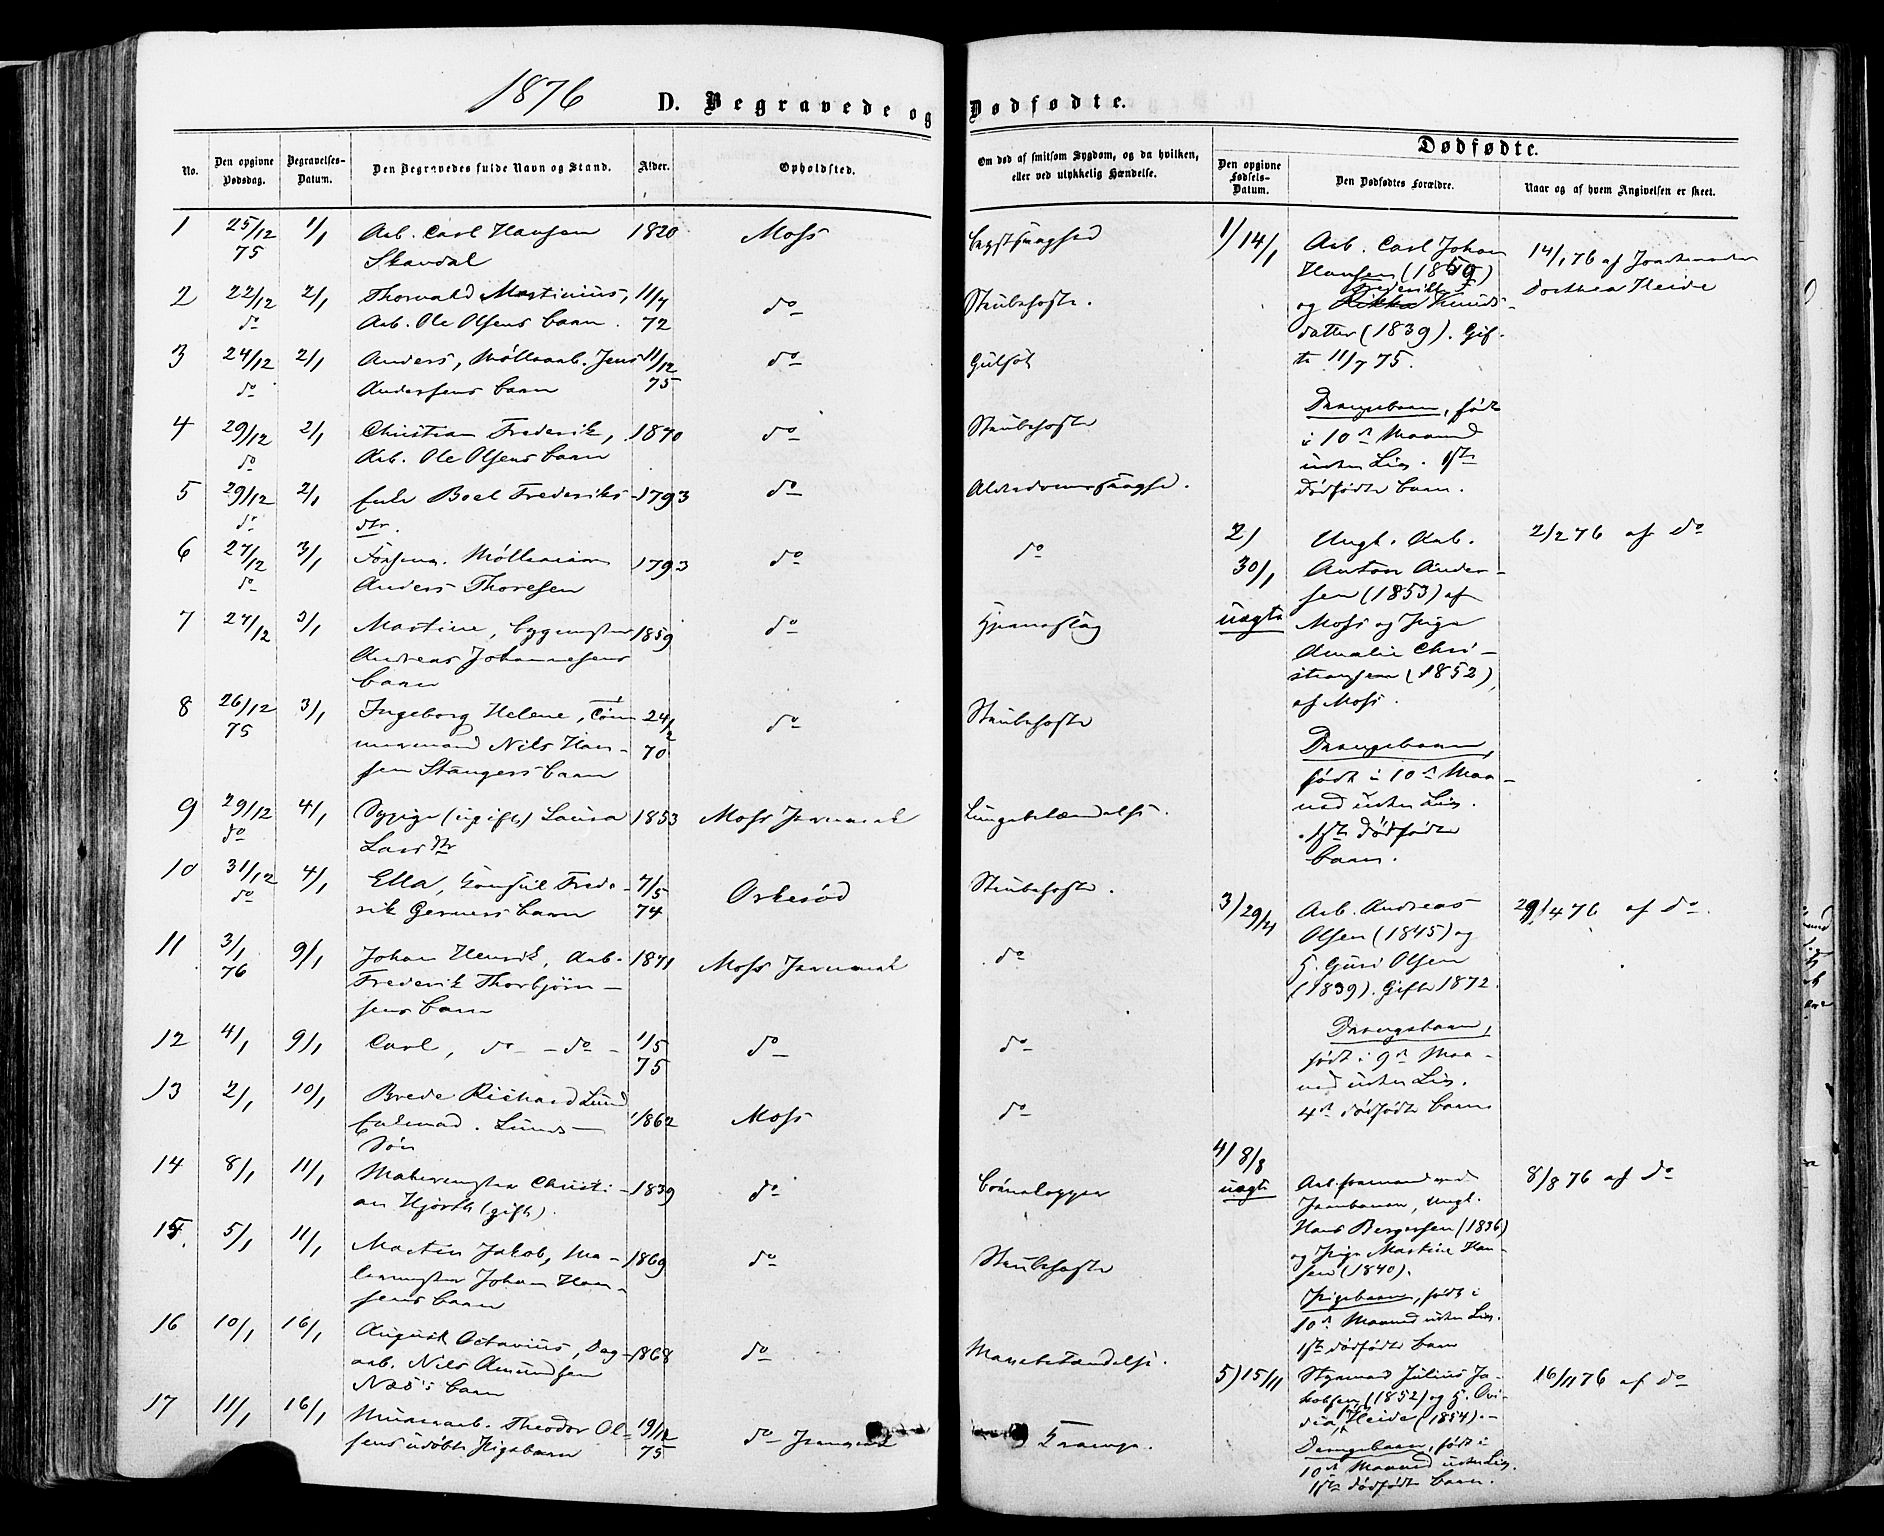 1876
D. Begravede og Dødfødte.
No.
Den opgivne Dødsdag.
Begravelses-Datum.
Den Begravedes fulde Navn og Stand.
Alder.
Opholdsted.
Om død af smitsom Sygdom, og da hvilken, eller ved ulykkelig Hændelse.
Dødfødte.
Den opgivne Fødsels-Datum.
Den Dødfødtes Forældre.
Naar og af hvem Angivelsen er skeet.
1 25/12 75 1/1 Arb. Carl Hansen 1820 Moss Brystsvaghed
Skaudal
2 22/12 do 2/1 Thorvald Martinius, 11/7 72 do Strubehoste.
Arb. Ole Olsens barn.
3 24/12 do 2/1 Anders, Møllearb. Jens 11/12 75 do Gulsot
Andersens barn
4 29/12 do 2/1 Christian Frederik, 1870 do Strubehoste
Arb. Ole Olsens barn
5 29/12 do 2/1 Enke Boel Frederiks- 1793 do Alderdomssvaghed.
dtr.
6 27/12 do 3/1 Møllerm 1793 do do
Anders Thoresen
7 27/12 3/1 Martine, bygmester 1859 do Hjerneslag
Andreas Johannesens
barn
8 26/12 75 3/1 Ingeborg Helene, Tøm- 24/2 70 do Strubehoste
mermand Nils Han-
sen Stangers barn
9 29/12 do 4/1 Sypige (ugift) Laura 1853 Moss Jernværk Lungebetændelse.
Lars dtr
10 31/12 do 4/1 Ella, Konsul Frede- 7/5 74 Orkerød Strubehoste.
rik Gerners barn
11 3/1 76 9/1 Johan Henrik, Arb. 1871 Moss Jernværk do
Frederik Thorbjørn-
sens barn
12 4/1 9/1 Carl, do - do - 1/5 75 do do
13 2/1 10/1 Brede Richard Lund 1862 Moss do
Lunds
Søn
14 8/1 11/1 Malermester Christi- 1839 do Børnekopper
an Hjorth (gift).
15. 5/1 11/1 Martin Jakob, Ma- 1869 do Strubehoste
lermester Johan Han-
sens barn
16 10/1 16/1 August Octavius, Dag- 1868 do Mavebetændelse.
arb. Nils Amundsen
Næs's barn
17 11/1 16/1 Murerarb. Theodor Ol- 19/12 75 do Jernværk Krampe.
sens udøbte Pigebarn
1/ 14/1 Arb. Carl Johan
Hansen (1850)
og Frederikke F. Knuds-
datter (1839). Gif-
te 11/7 75.
Drengebarn, født
i 10de Maaned
uden Liv. 1ste
dødfødte barn.
14/1 76 af Jordemoder
Dorthea Heide
2/ 30/1 uægte Ungk. Arb.
Anton Ander-
sen (1853) af
Moss og Pige
Amalie Chri-
stiansen (1852),
af Moss.
Drengebarn,
født i 10de Maa-
ned uden Liv.
1ste dødfødte
barn.
2/2 76 af do
3/ 29/4 Arb. Andreas
Olsen (1845) og
H. Guri Olsen
(1839). Gifte 1872.
Drengebarn,
født i 9de Maa-
ned uden Liv.
4de dødfødte barn
29/4 76 af do.
4/ 8/8 uægte Arb.formand ved
Jernbanen, Ungk.
Hans Bergersen (1836)
og Pige Martine Han-
sen (1840).
Pigebarn, født i
10de Maaned uden Liv.
1ste dødfødte barn
8/8 76 af do
5) 15/11 Styrmand Julius Ja-
kobsen (1852) og H. Ovi-
dia Heide (1854).-
Drengebarn, født i
10de Maaned uden Liv.
1ste dødfødte barn.
16/11 76 af do